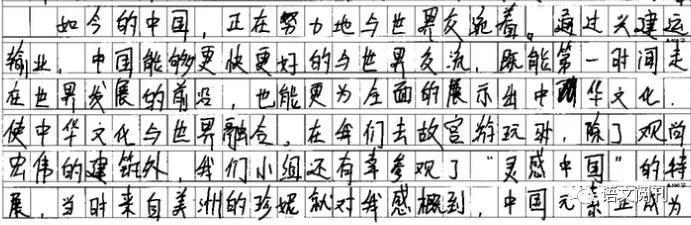 如今的中国，正在努力地与世界交流着。通过兴建运
输业，中国能够更快更好的与世界交流，既能第一时间走
在世界发展的前沿，也能更为全面的展示出中华文化，
使中华文化与世界融合。在我们去故宫游玩时，除了观尚
宏伟的建筑外，我们小组还有幸参观了“灵感中国”的特
展，当时来自美洲的珍妮就对我感概到，中国元素正成为
语文月刊